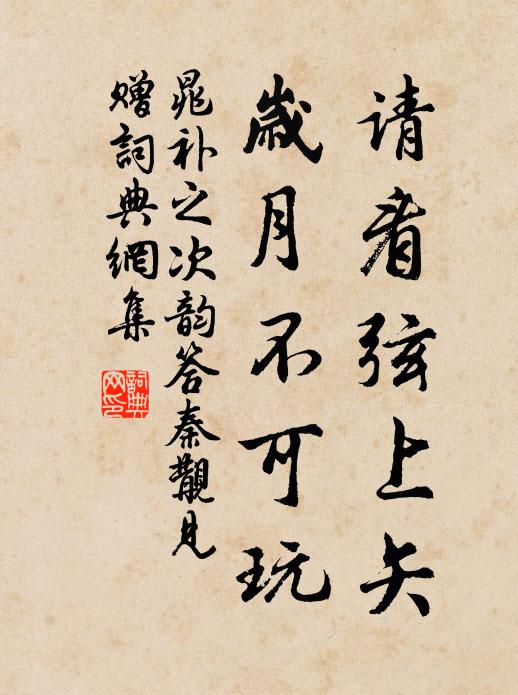 请看弦上矢
岁月不可玩
晁补之次韵答秦觏见
赠詞典網集
詞典
网印